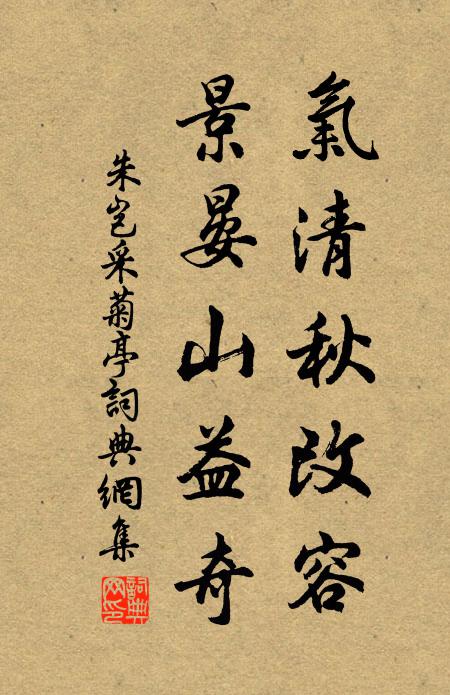 氣清秋改容
景晏山益奇
朱岂采菊亭詞典網集
詞典网印